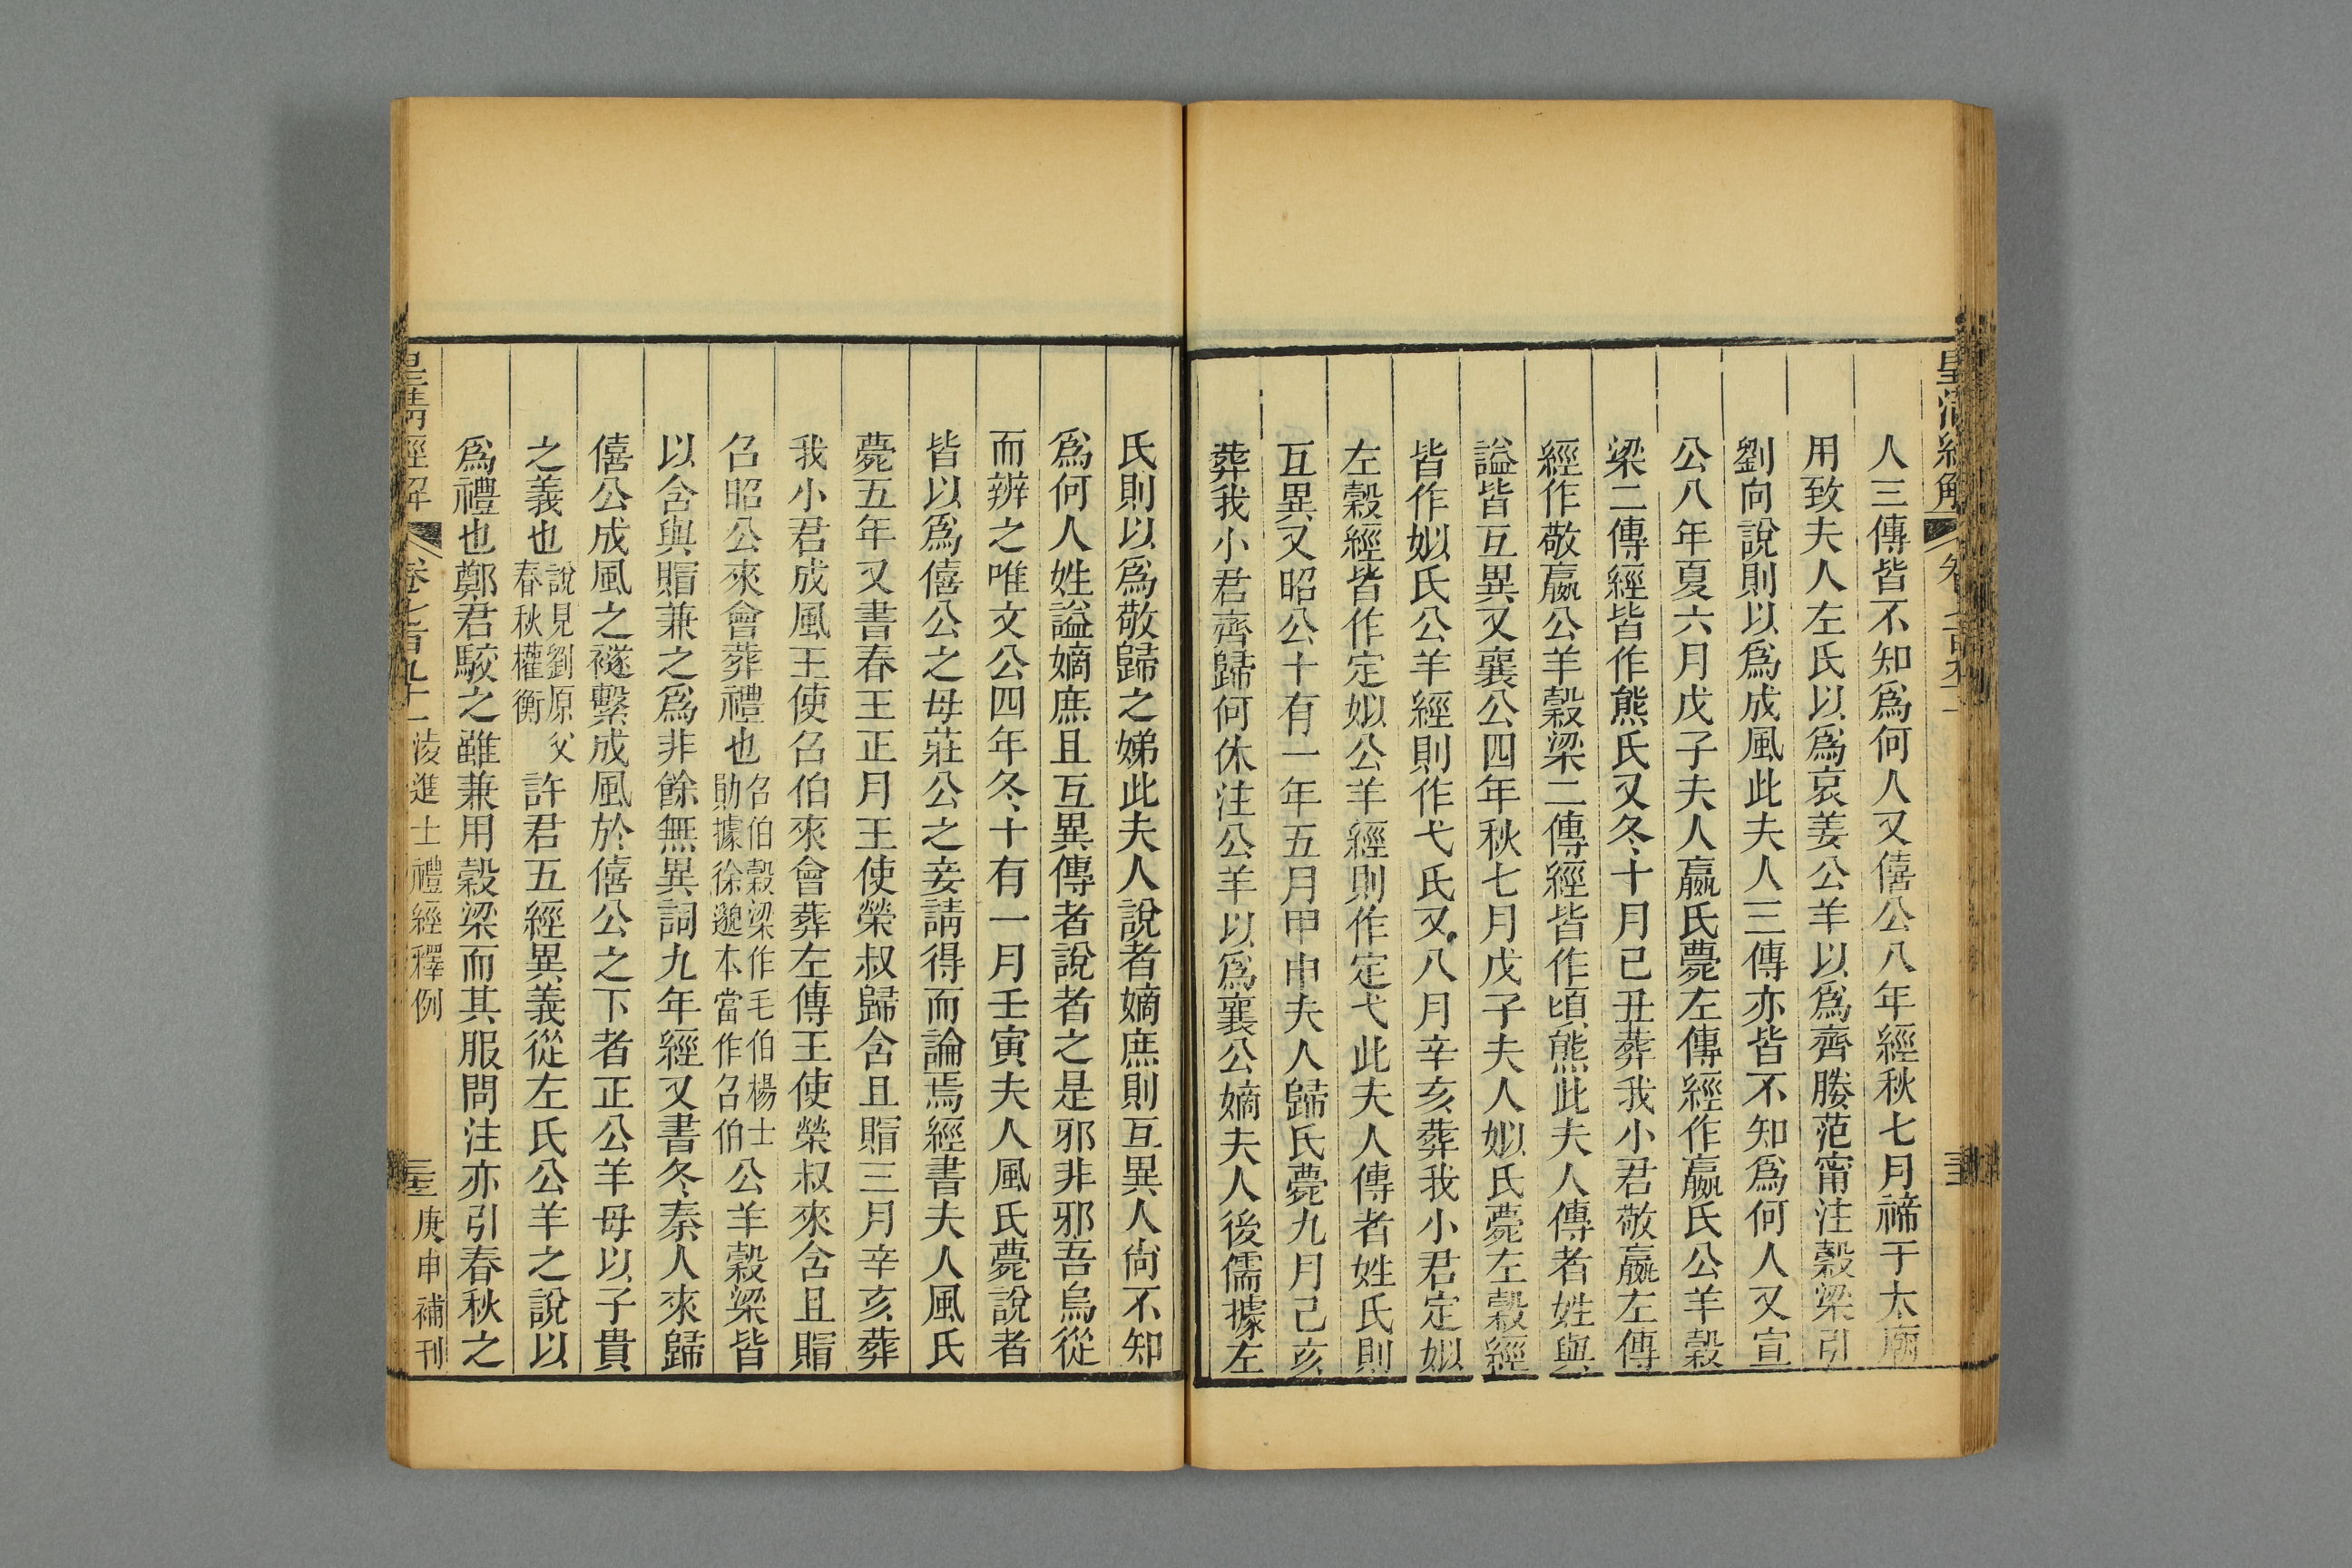 皇清經解
人三傳皆不知爲何人又僖公八年經秋七月禘于太廟
用致夫人左氏以爲哀姜公羊以爲齊媵范甯注穀梁引
劉向說則以爲成風此夫人三傳亦皆不知爲何人又宣
公八年夏六月戊子夫人嬴氏薨左傳經作嬴氏公羊穀
梁二傳經皆作熊氏又冬十月己丑葬我小君敬嬴左傳
經作敬嬴公羊穀梁二傳經皆作頃熊此夫人傳者姓與
謚皆互異又襄公四年秋七月戊子夫人姒氏薨左穀經
皆作姒氏公羊經則作弋氏又八月辛亥葬我小君定姒
左穀經皆作定姒公羊經則作定弋此夫人傳者姓氏則
互異又昭公十有一年五月甲申夫人歸氏薨九月己亥
葬我小君齊歸何休注公羊以爲襄公嫡夫人後儒據左
氏則以爲敬歸之娣此夫人說者嫡庶則互異人尙不知
爲何人姓謚嫡庶且互異傳者說者之是邪非邪吾烏從
而辨之唯文公四年冬十有一月壬寅夫人風氏薨說者
皆以爲僖公之母莊公之妾請得而論焉經書夫人風氏
薨五年又書春王正月王使榮叔歸含且賵三月辛亥葬
我小君成風王使召伯來會葬左傳王使榮叔來含且賵
召昭公來會葬禮也召伯穀梁作毛伯楊士勛據徐邈本當作召伯公羊穀梁皆
以含與賵兼之爲非餘無異詞九年經又書冬秦人來歸
僖公成風之襚繫成風於僖公之下者正公羊母以子貴
之義也說見劉原父春秋權衡許君五經異義從左氏公羊之說以
爲禮也鄭君駮之雖兼用穀梁而其服問注亦引春秋之
皇清經解 卷七百九十一 淩進士禮經釋例 庚申補刊